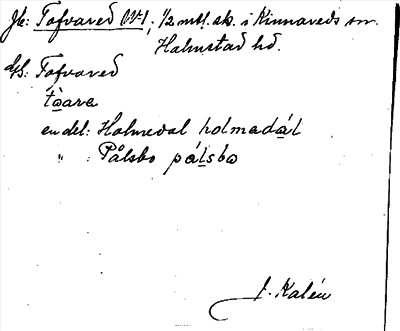 Jb: Tofvared No 1, 1/2 mtl. sk. i Kinnareds sn.
Halmstad hd.
ds. Tofvared
tåara
en del: Holmedal holmadál
" : Pålsbo pálsbo
J. Kalén